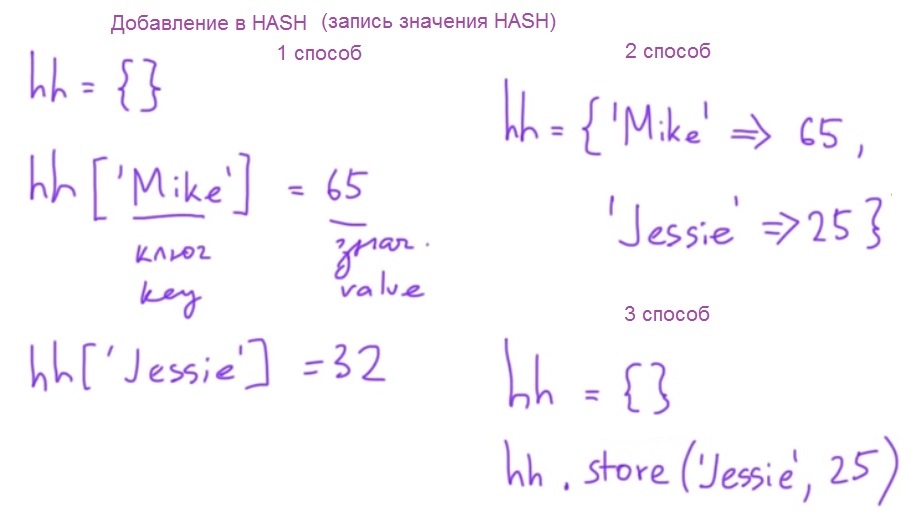 Добавление в HASH (запись значения HASH)
1 способ
hh = {}
hh ['Mike'] = 65
ключ знач.
key value
hh ['Jessie'] = 32
2 способ
hh = {'Mike' => 65,
'Jessie' => 25}
3 способ
hh = {}
hh . store ('Jessie', 25)